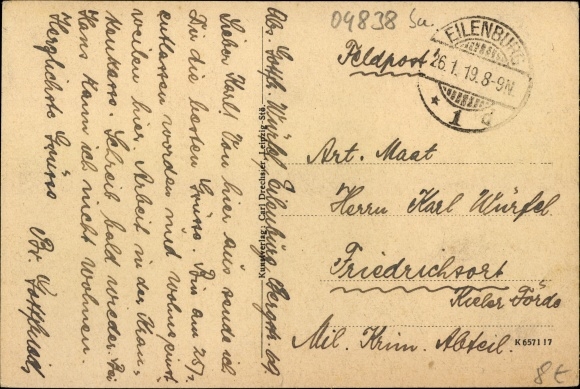 04838 Su.
Feldpost!
EILENBURG
26.1.19.8-9N.
* 1 d
Art. Maat
Herrn Karl Würfel
Friedrichsort
Kieler Förde
Mil. Krim. Abteil.
K 657117
8€
Kunstverlag: Carl Drechsler, Leipzig-Stö.
Abs. Gottfr. Würfel, Eilenburg, Bergstr. 69
Lieber Karl! Von hier aus sende ich
Dir die besten Grüße. Bin am 25/1.
entlassen worden und wohne jetzt
weilen hier. Arbeit in der Kran-
kenkass. Schreib bald wieder. Bei
Hans kann ich nicht wohnen.
Herzlichste Grüße
Br. Gottfried